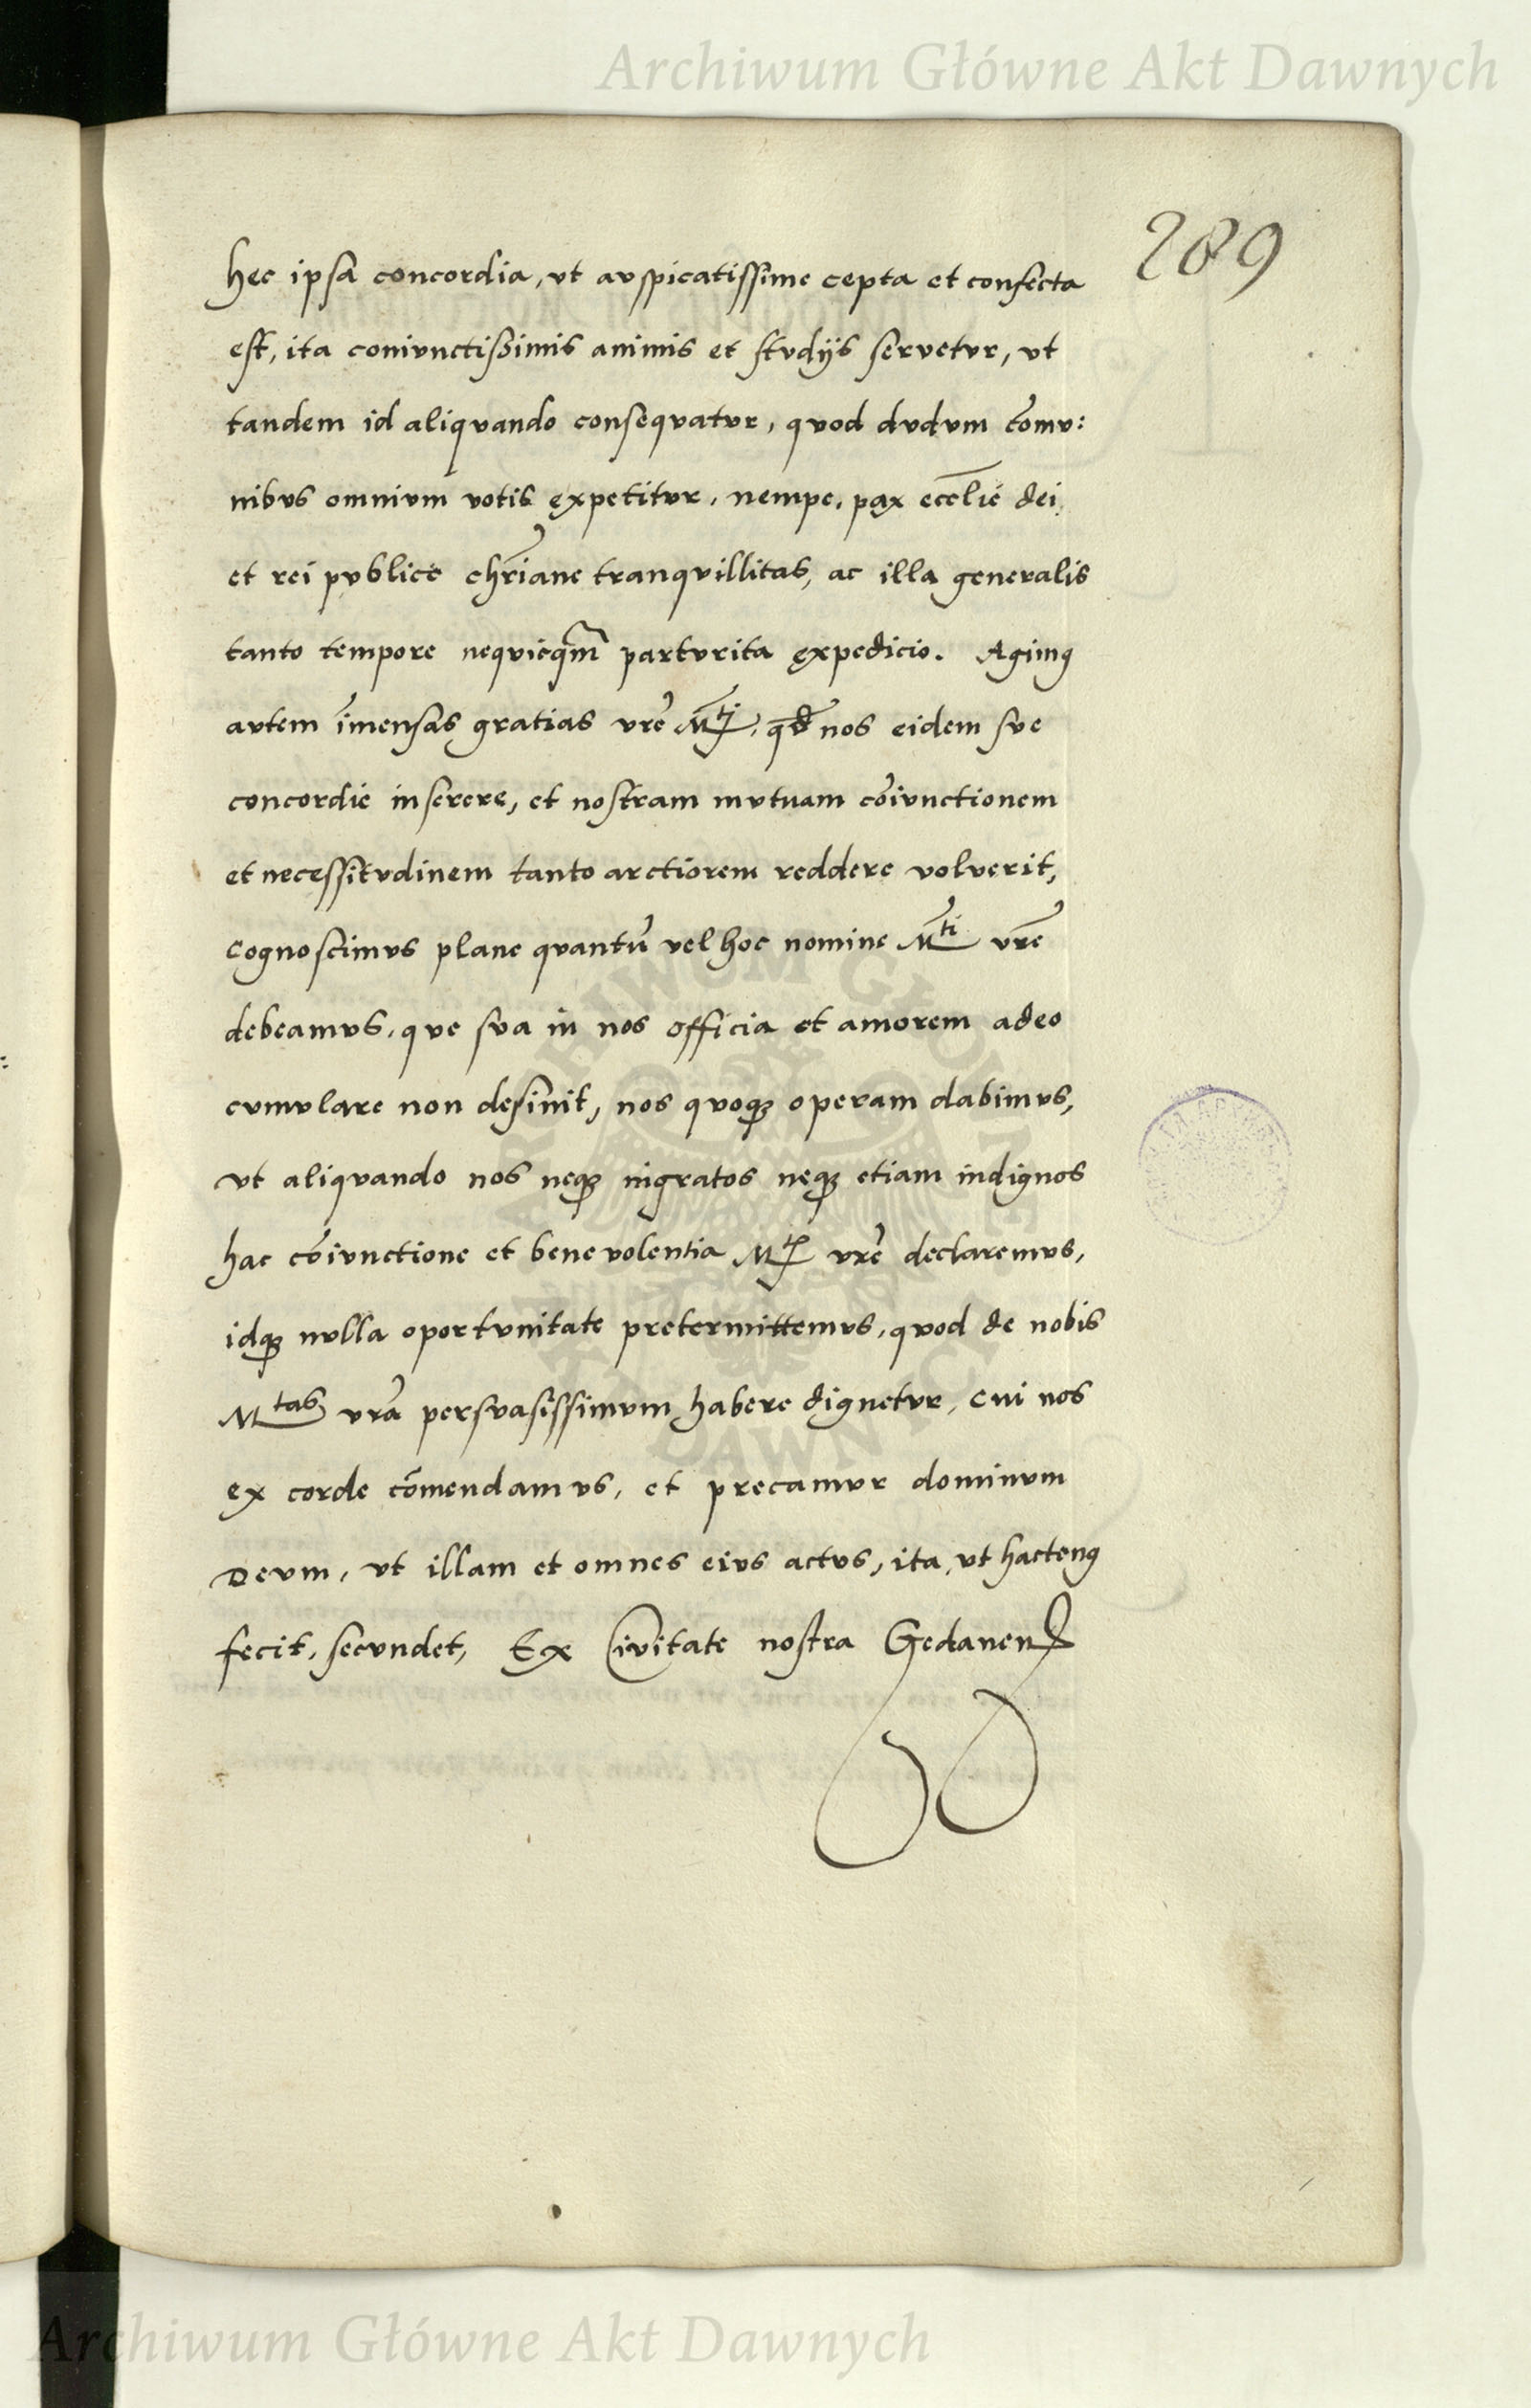 Archiwum Główne Akt Dawnych
289
hec ipsa concordia, vt auspicatissime cepta et confecta
est, ita coniunctißimis animis et studijs seruetur, vt
tandem id aliquando consequatur, quod dudum com̄u:
nibus omnium votis expetitur, nempe, pax eccl̄ie dei,
et rei publice chr̄iane tranquillitas, ac illa generalis
tanto tempore nequicq̄m parturita expedicio. Agimꝰ
autem im̄ensas gratias vr̄e M^ti, qd̄ nos eidem sue
concordie inserere, et nostram mutuam cōiunctionem
et necessitudinem tanto arctiorem reddere voluerit,
Cognoscimus plane quantū vel hoc nomine M^ti vr̄e
debeamus, que sua in nos officia et amorem adeo
cumulare non desinit, nos quoqꝫ operam dabimus,
vt aliquando nos neqꝫ ingratos neqꝫ etiam indignos
hac cōiunctione et beneuolentia M^tis vr̄e declaremus,
idqꝫ nulla oportunitate pretermittemus, quod de nobis
M^tas vr̄a persuasissimum habere dignetur, cui nos
ex corde cōmendamus, et precamur dominum
Deum, vt illam et omnes eius actus, ita, vt hactenꝰ
fecit, secundet, Ex Ciuitate nostra Gedanen̄
ARCHIWUM GŁÓWNE AKT DAWNYCH
Archiwum Główne Akt Dawnych